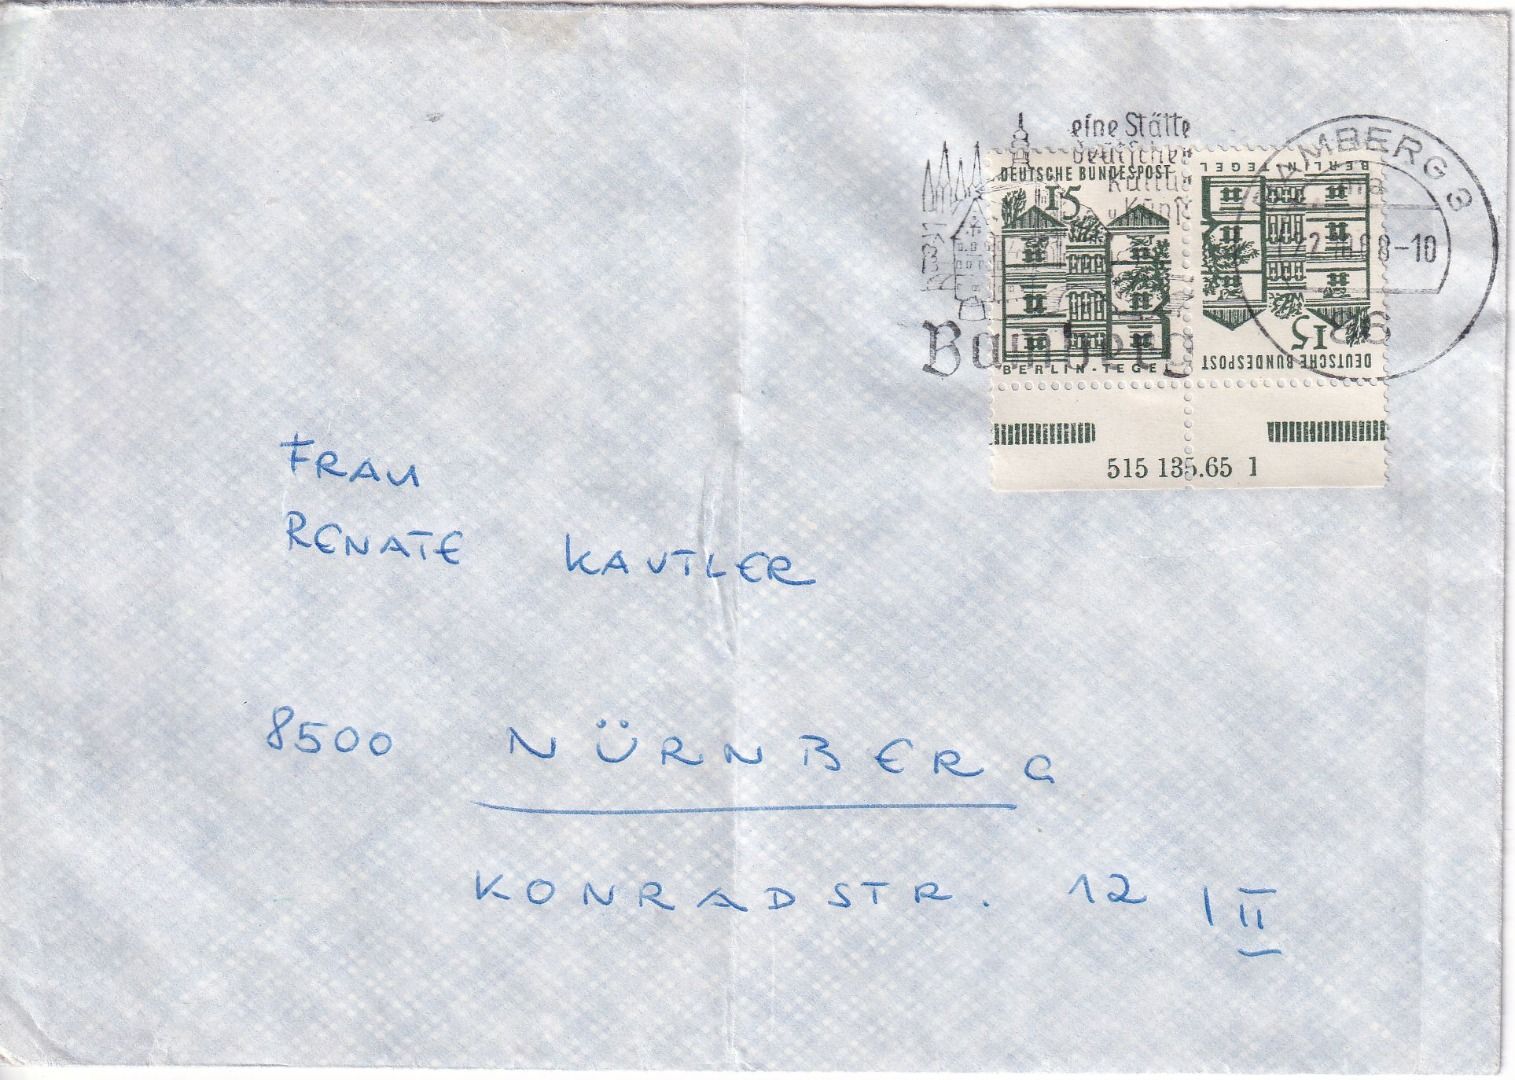 eine Stätte
deutscher
Kultur
u. Kunst
Bamberg
BAMBERG 3
-10
86
DEUTSCHE BUNDESPOST
15
BERLIN-TEGEL
DEUTSCHE BUNDESPOST
15
BERLIN-TEGEL
515 135.65 1
FRAU
RENATE KAUTLER
8500 NÜRNBERG
KONRADSTR. 12 / II